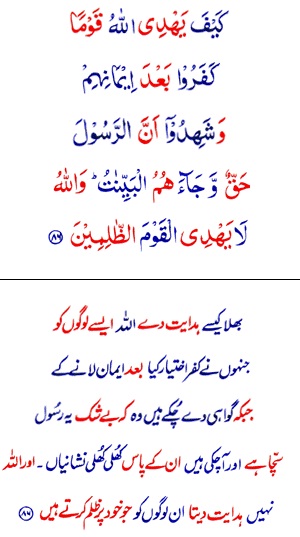 كَيْفَ يَهْدِى اللّٰهُ قَوْمًا
كَفَرُوْا بَعْدَ اِيْمَانِهِمْ
وَشَهِدُوْٓا اَنَّ الرَّسُوْلَ
حَقٌّ وَّ جَآءَ هُمُ الْبَيِّنٰتُ ؕ وَاللّٰهُ
لَا يَهْدِى الْقَوْمَ الظّٰلِمِيْنَ ﴿۸۶﴾
بھلا کیسے ہدایت دے اللہ ایسے لوگوں کو
جنہوں نے کفر اختیار کیا بعد ایمان لانے کے
جبکہ گواہی دے چکے ہیں وہ کہ بے شک یہ رسُول
سچّا ہے اور آچکی ہیں ان کے پاس کھُلی کھُلی نشانیاں ۔ اور اللہ
نہیں ہدایت دیتا ان لوگوں کو جو خود پر ظلم کرتے ہیں ﴿۸۶﴾